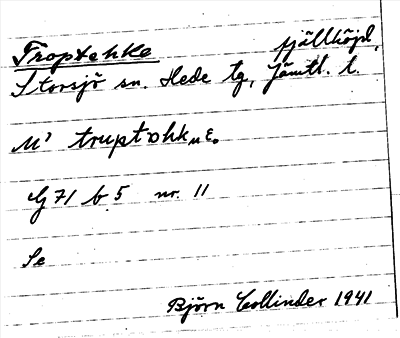 Troptehke fjällhöjd,
Storsjö sn. Hede tg, Jämtl. l.
M' truptohkuɛ.
G 71 b 5 nr. 11
Se
Björn Collinder 1941